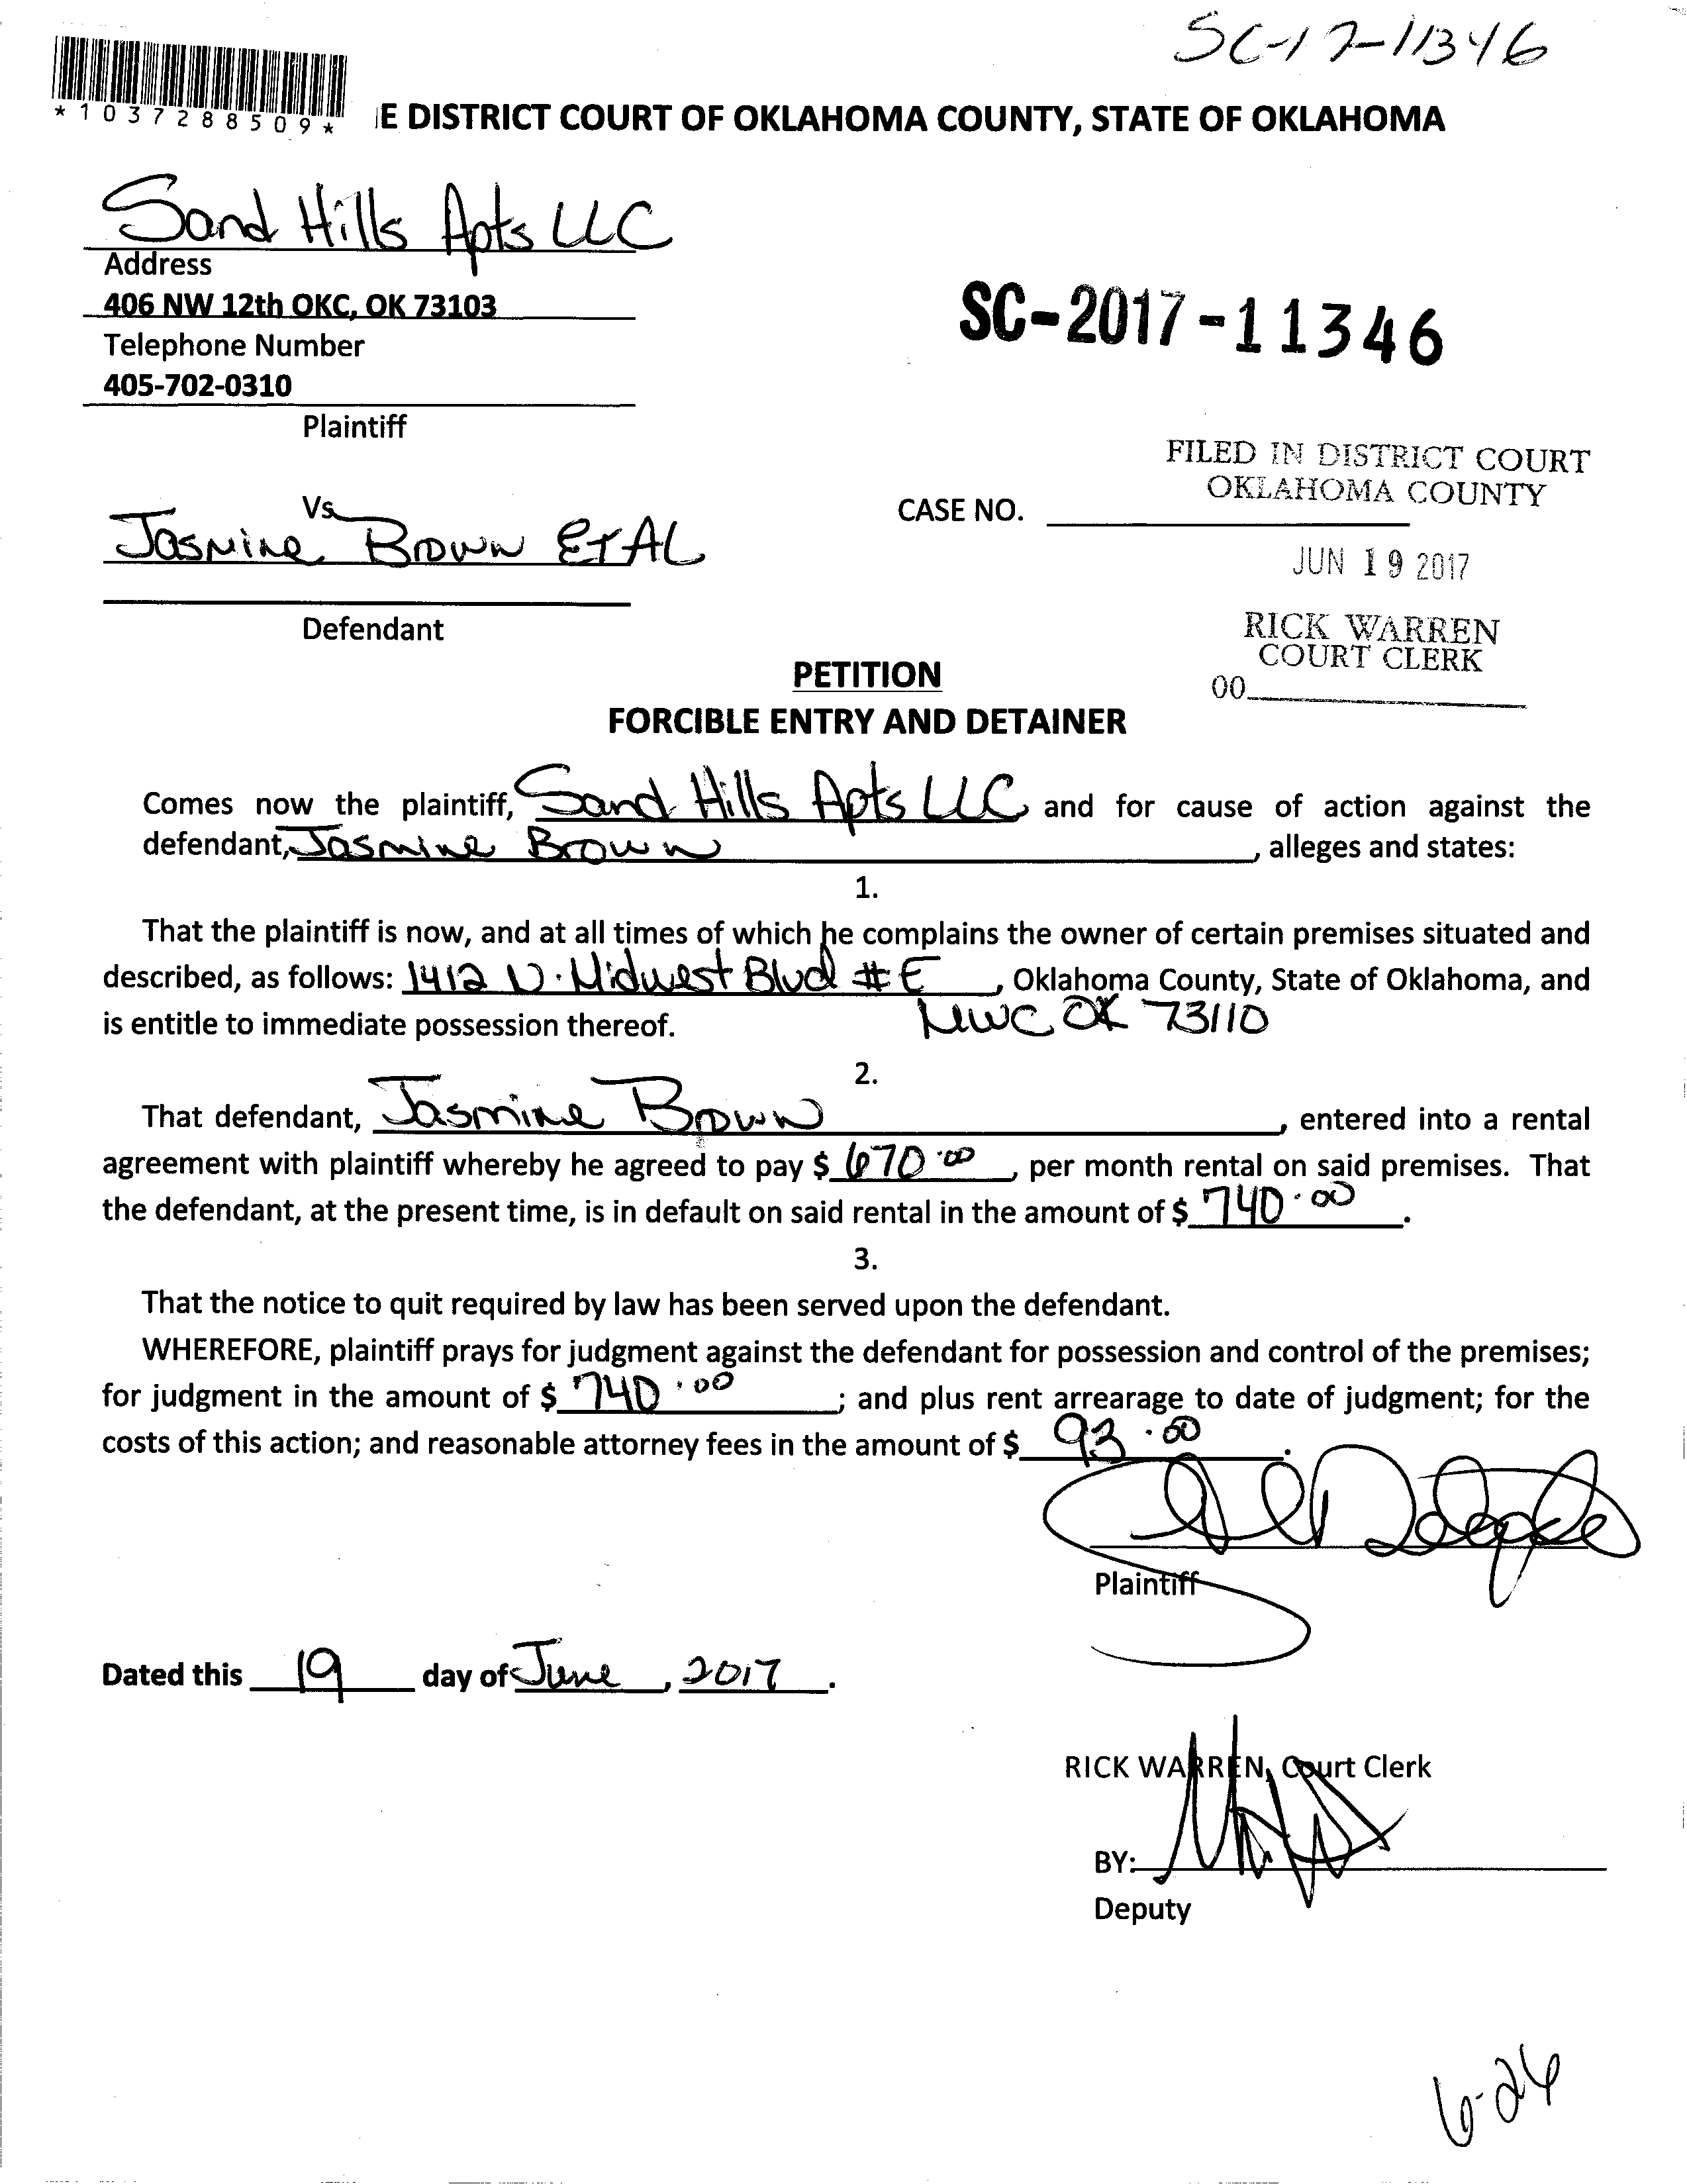 SC-17-11346
*1037288509*
E DISTRICT COURT OF OKLAHOMA COUNTY, STATE OF OKLAHOMA
Sand Hills Apts LLC
Address
406 NW 12th OKC, OK 73103
Telephone Number
405-702-0310
Plaintiff
SC-2017-11346
FILED IN DISTRICT COURT
OKLAHOMA COUNTY
Vs
CASE NO.
Jasmine Brown ET AL
JUN 19 2017
Defendant
RICK WARREN
COURT CLERK
00
PETITION
FORCIBLE ENTRY AND DETAINER
Comes now the plaintiff, Sand Hills Apts LLC and for cause of action against the
defendant, Jasmine Brown, alleges and states:
1.
That the plaintiff is now, and at all times of which he complains the owner of certain premises situated and
described, as follows: 1412 N. Midwest Blvd # E, Oklahoma County, State of Oklahoma, and
is entitle to immediate possession thereof. MWC OK 73110
2.
That defendant, Jasmine Brown, entered into a rental
agreement with plaintiff whereby he agreed to pay $ 670.00, per month rental on said premises. That
the defendant, at the present time, is in default on said rental in the amount of $ 740.00.
3.
That the notice to quit required by law has been served upon the defendant.
WHEREFORE, plaintiff prays for judgment against the defendant for possession and control of the premises;
for judgment in the amount of $ 740.00; and plus rent arrearage to date of judgment; for the
costs of this action; and reasonable attorney fees in the amount of $ 93.00.
Plaintiff
Dated this 19 day of June, 2017.
RICK WARREN, Court Clerk
BY:
Deputy
6-26